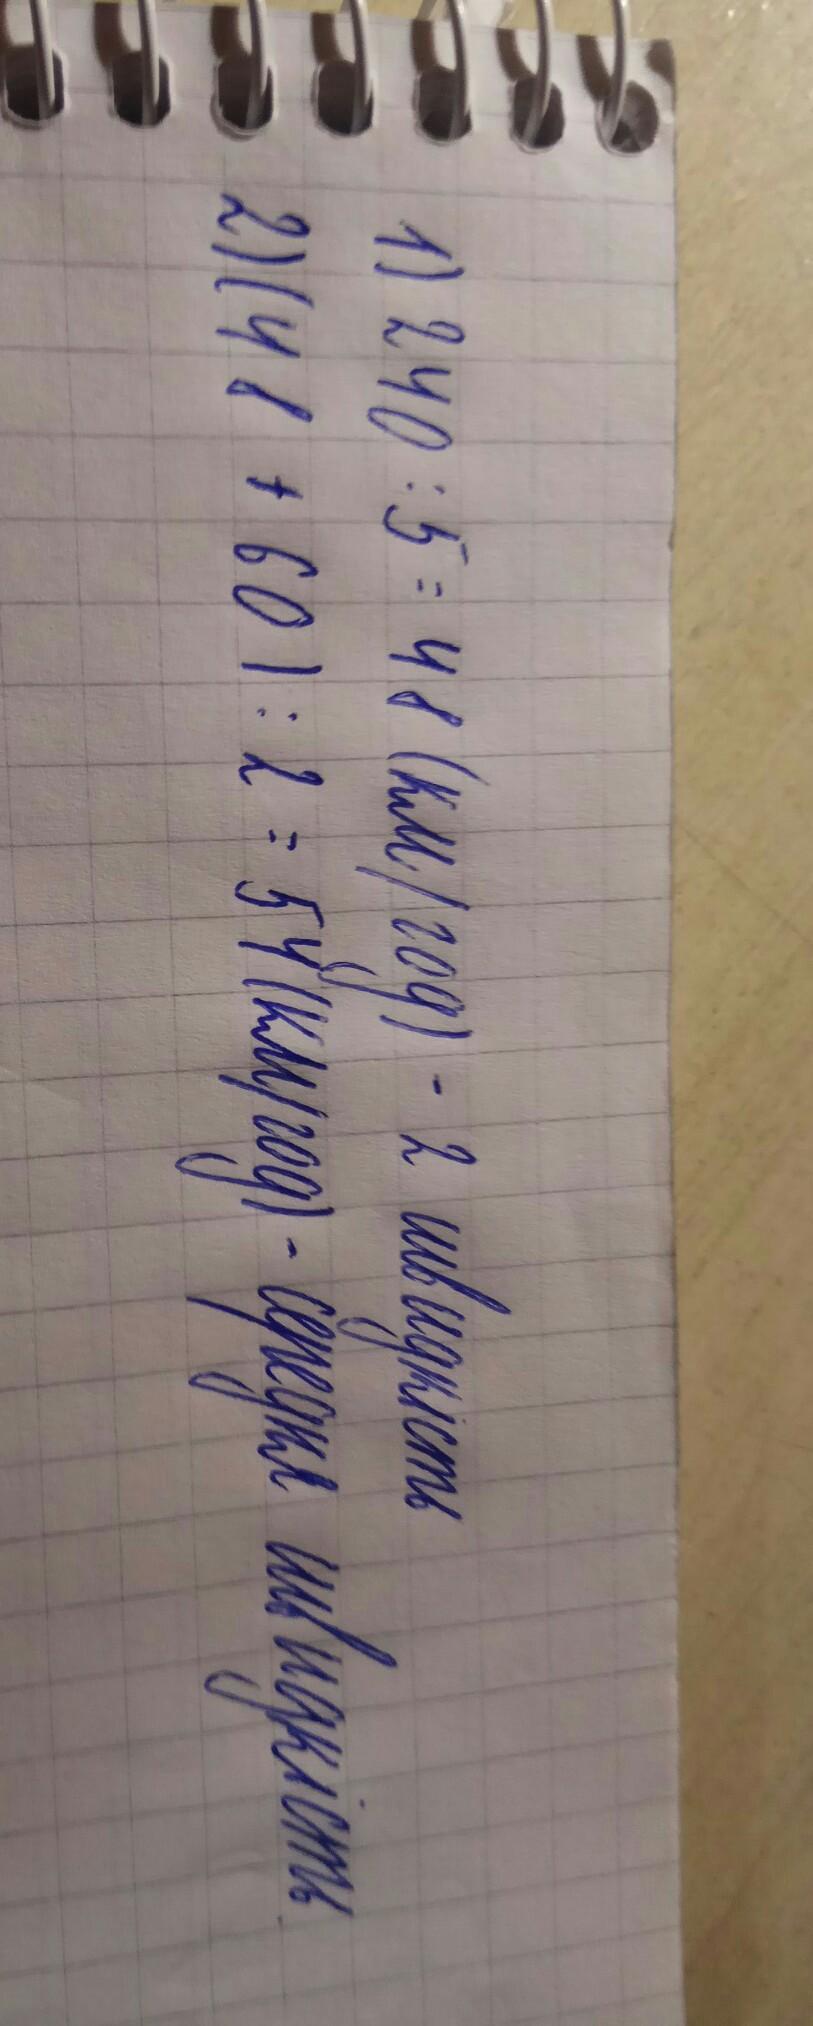 1) 240 : 5 = 48 (км/год) - 2 швидкість
2) (48 + 60) : 2 = 54 (км/год) - середня швидкість